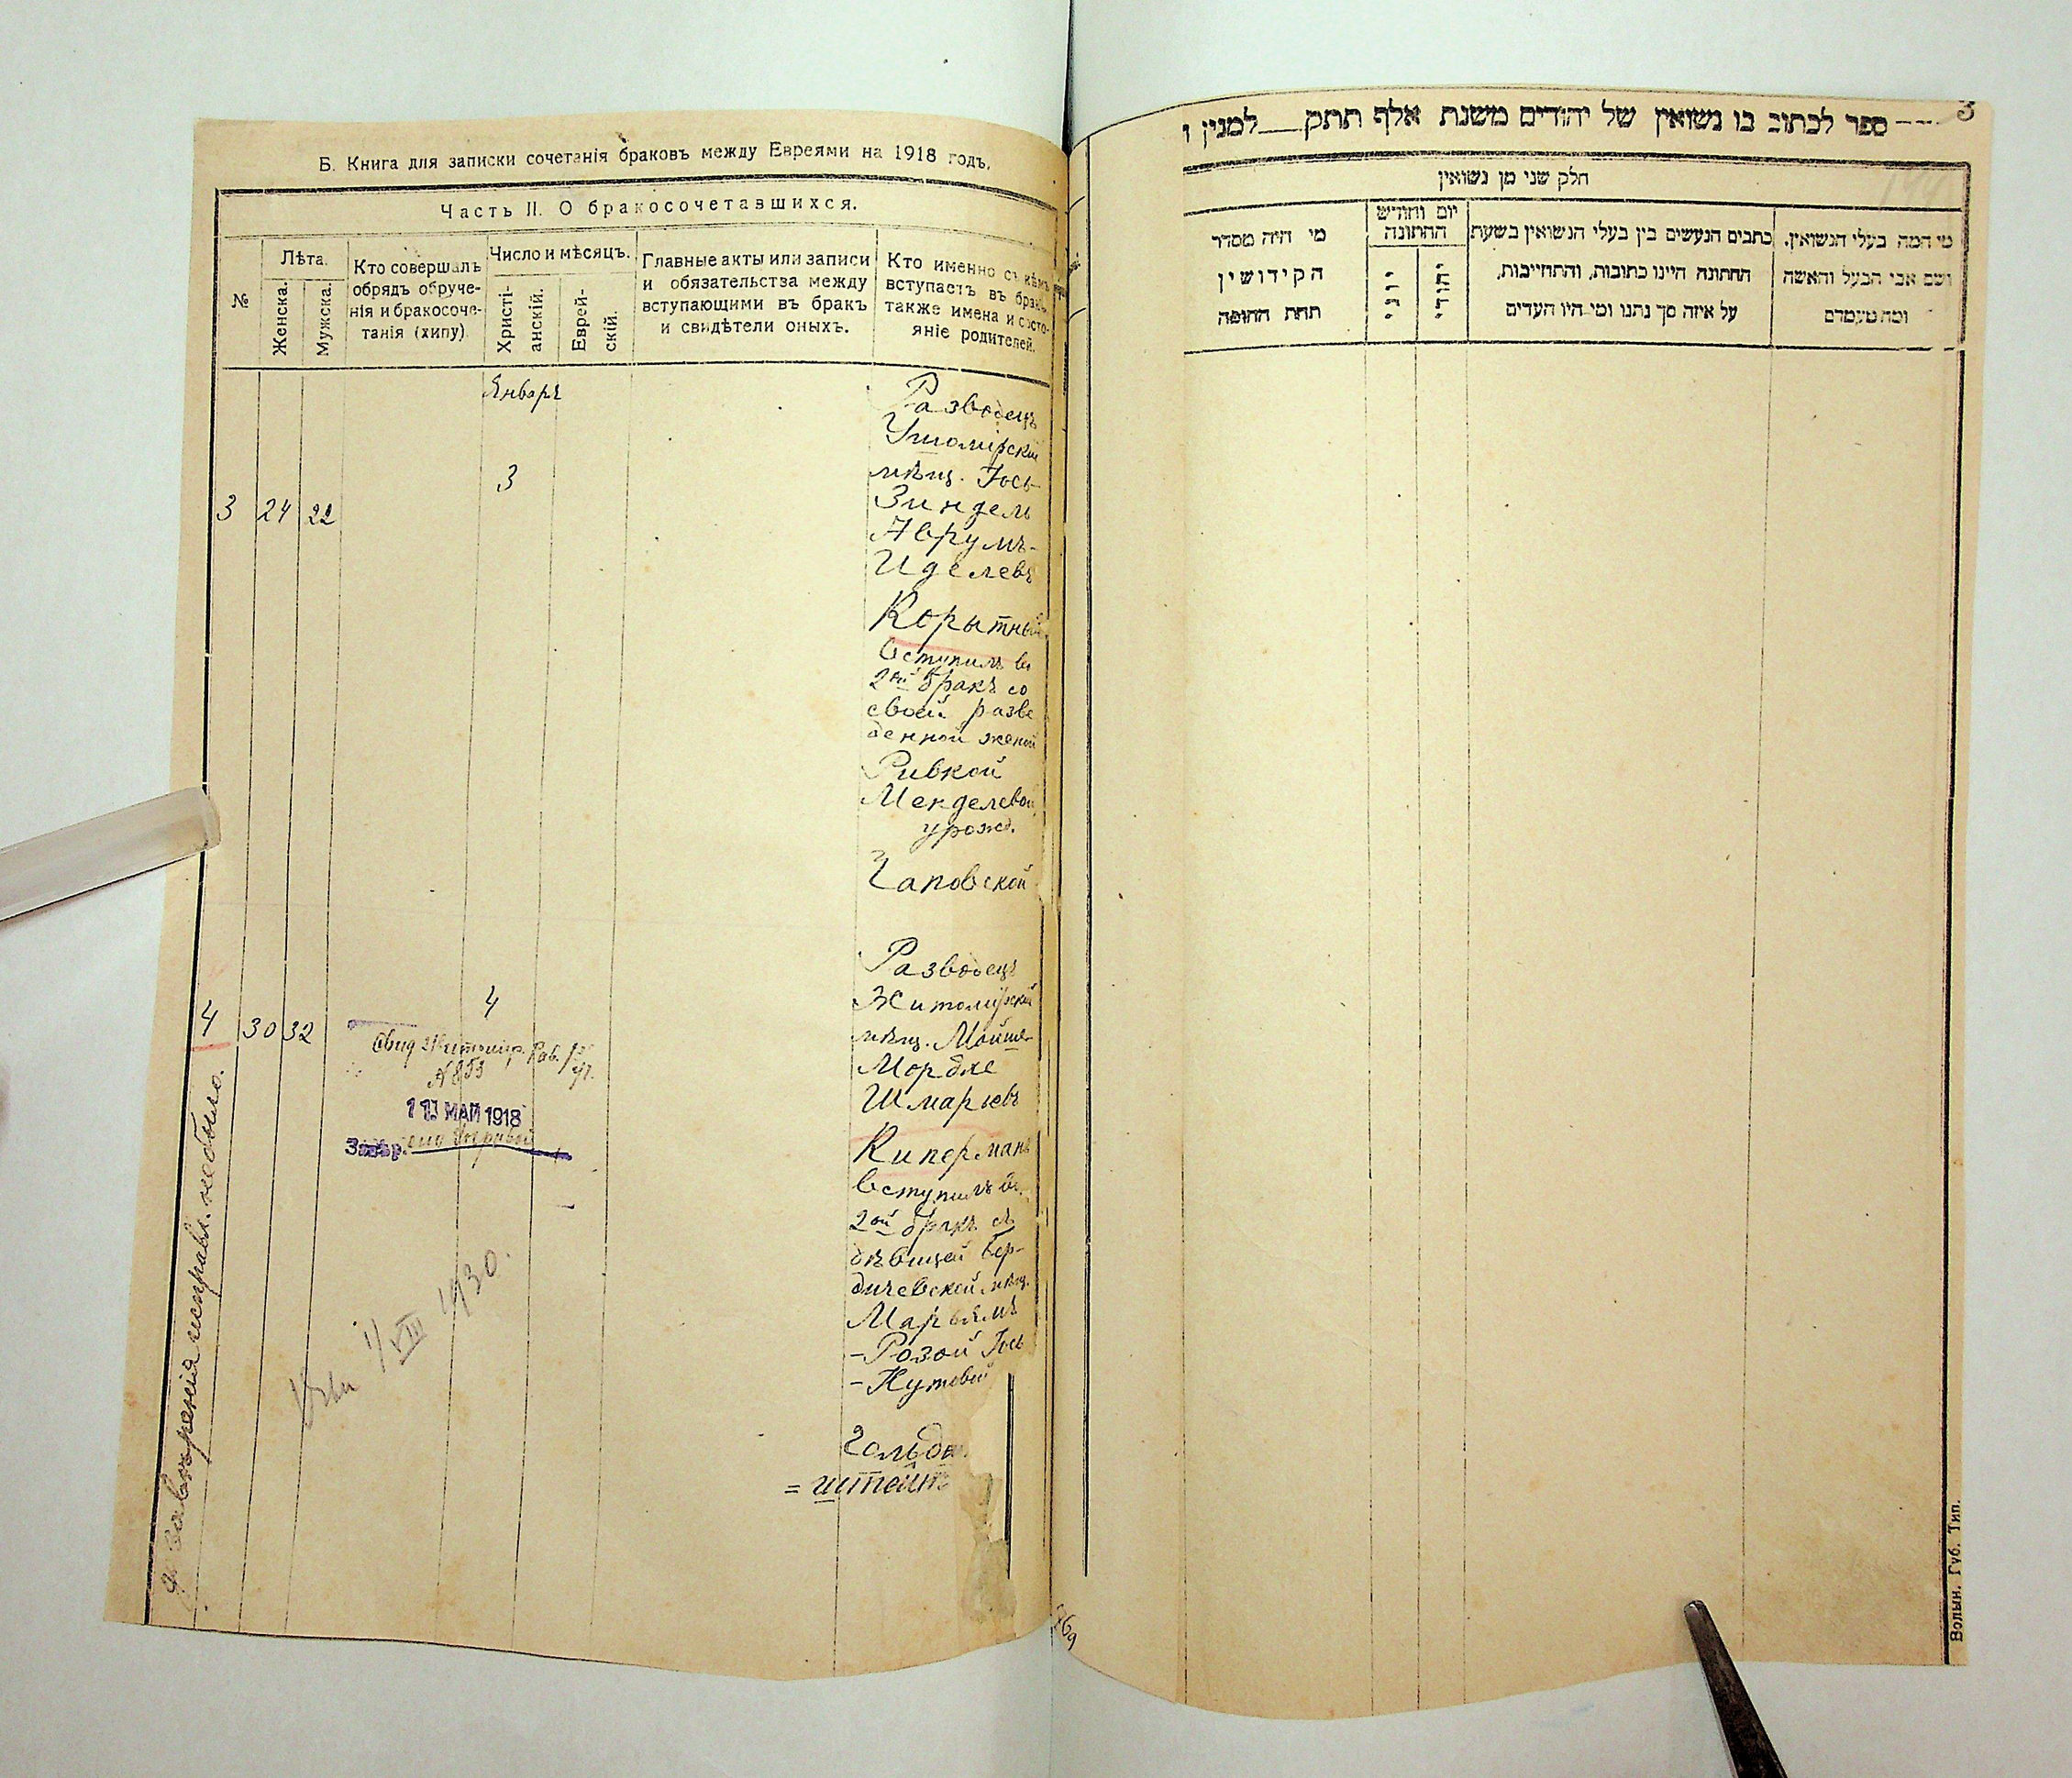 Б. Книга для записки сочетанія браковъ между Евреями на 1918 годъ.
Часть II. О бракосочетавшихся.
№
Лѣта.
Женска.
Мужска.
Кто совершалъ
обрядъ обруче-
нія и бракосоче-
танія (хипу)
Число и мѣсяцъ.
Христі-
анскій.
Еврей-
скій.
Главные акты или записи
и обязательства между
вступающими въ бракъ
и свидѣтели оныхъ.
Кто именно съ кѣмъ
вступаетъ въ бракъ,
также имена и состо-
яніе родителей.
Январь
3 24 22
3
Разводецъ
Ушомірскій
мѣщ. Іось-
Зиндель
Аврумъ-
Иделевъ
Корытный
вступилъ во
2ой бракъ со
своей разве
денной женой
Ривкой
Менделевой
урожд.
Чаповской
4 30 32
4
Свид Житомір. Раб.
№ 853
МАЙ 1918
1/VIII 1930.
Разводецъ
Житомірскій
мѣщ. Мойше-
Мордхе
Шмарьевъ
Киперманъ
вступилъ во
2ой бракъ съ
дѣвицей Бер-
дичевской мѣщ.
Марьямъ
-Розой Іось
-Нутовой
Гольден
=штейнъ
исправл. не было.
ספר לכתוב בו נשואין של יהודים משנת אלף תתק___למנין ו
3
חלק שני מן נשואין
מי המה בעלי הנשואין,
ושם אבי הבעל והאשה
ומה מעמדם
כתבים הנעשים בין בעלי הנשואין בשעת
החתונה היינו כתובות, והתחייבות,
על איזה סך נתנו ומי היו העדים
יום וחודש
החתונה
יהודי
יוני
מי היה מסדר
הקידושין
תחת החופה
Волын. Губ. Тип.